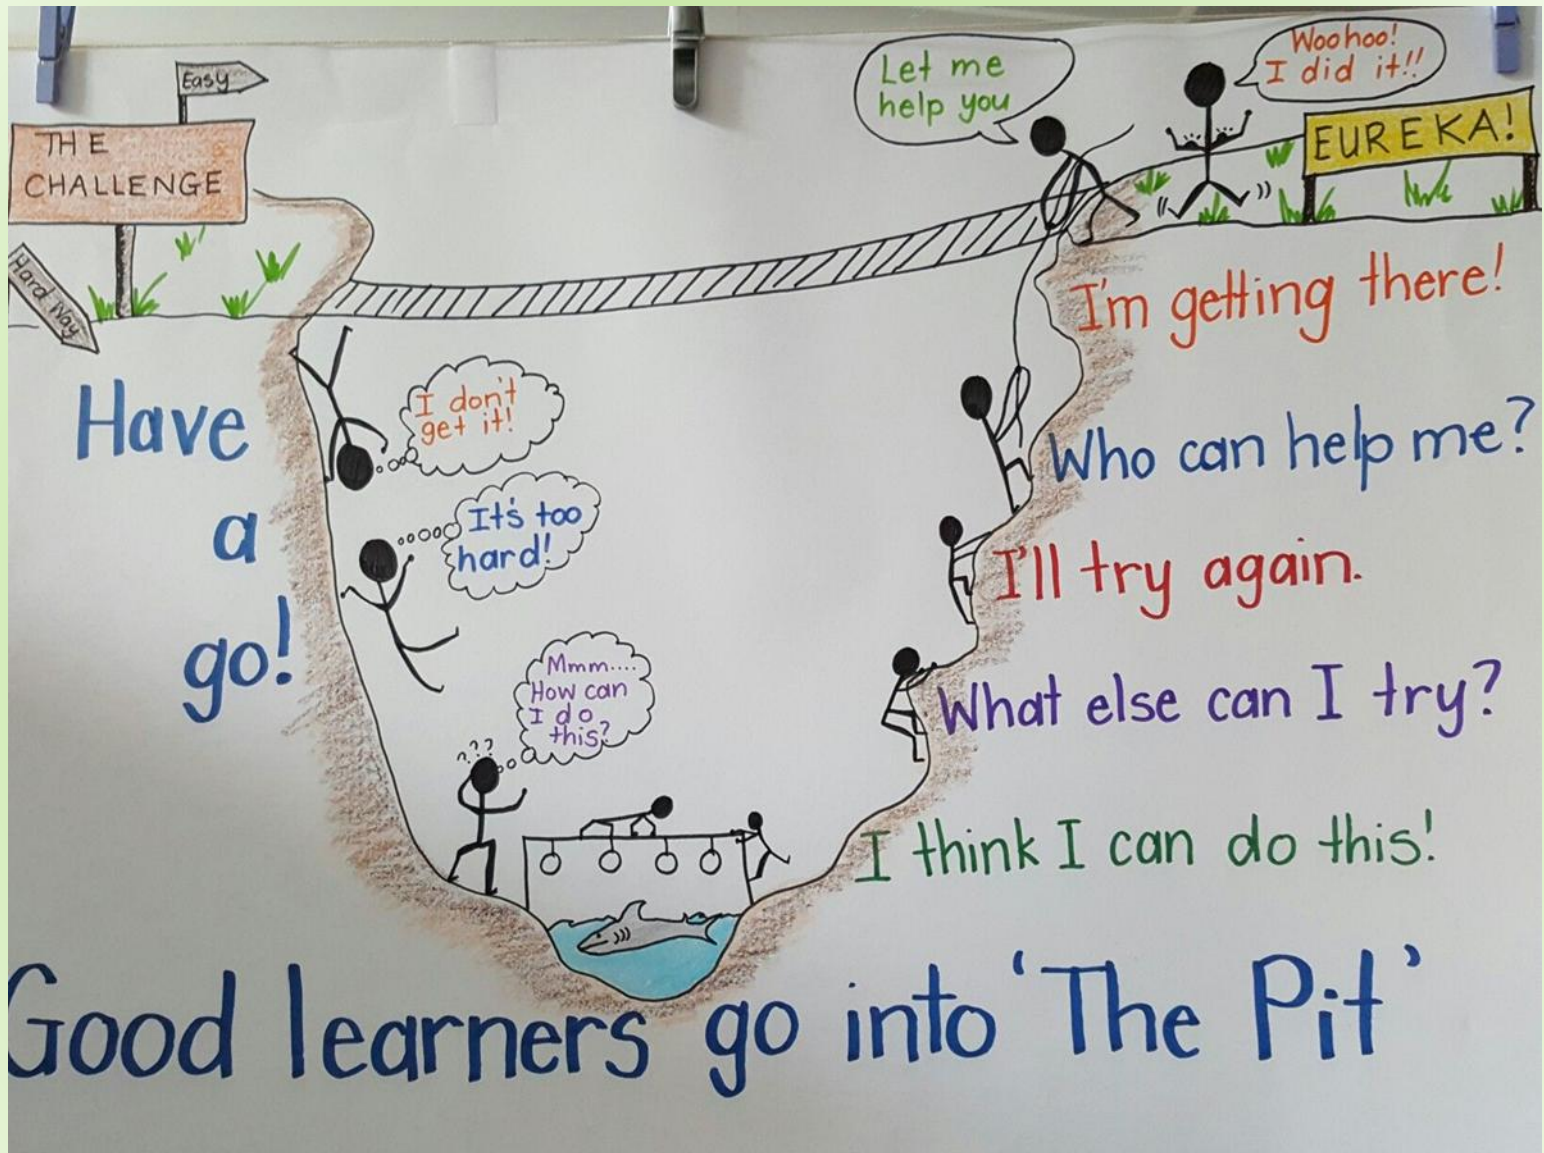 Easy
THE
CHALLENGE
Hard Way
Let me
help you
Woohoo!
I did it!!
EUREKA!
Have
a
go!
I don't
get it!
It's too
hard!
???
Mmm....
How can
I do
this?
I'm getting there!
Who can help me?
I'll try again.
What else can I try?
I think I can do this!
Good learners go into 'The Pit'